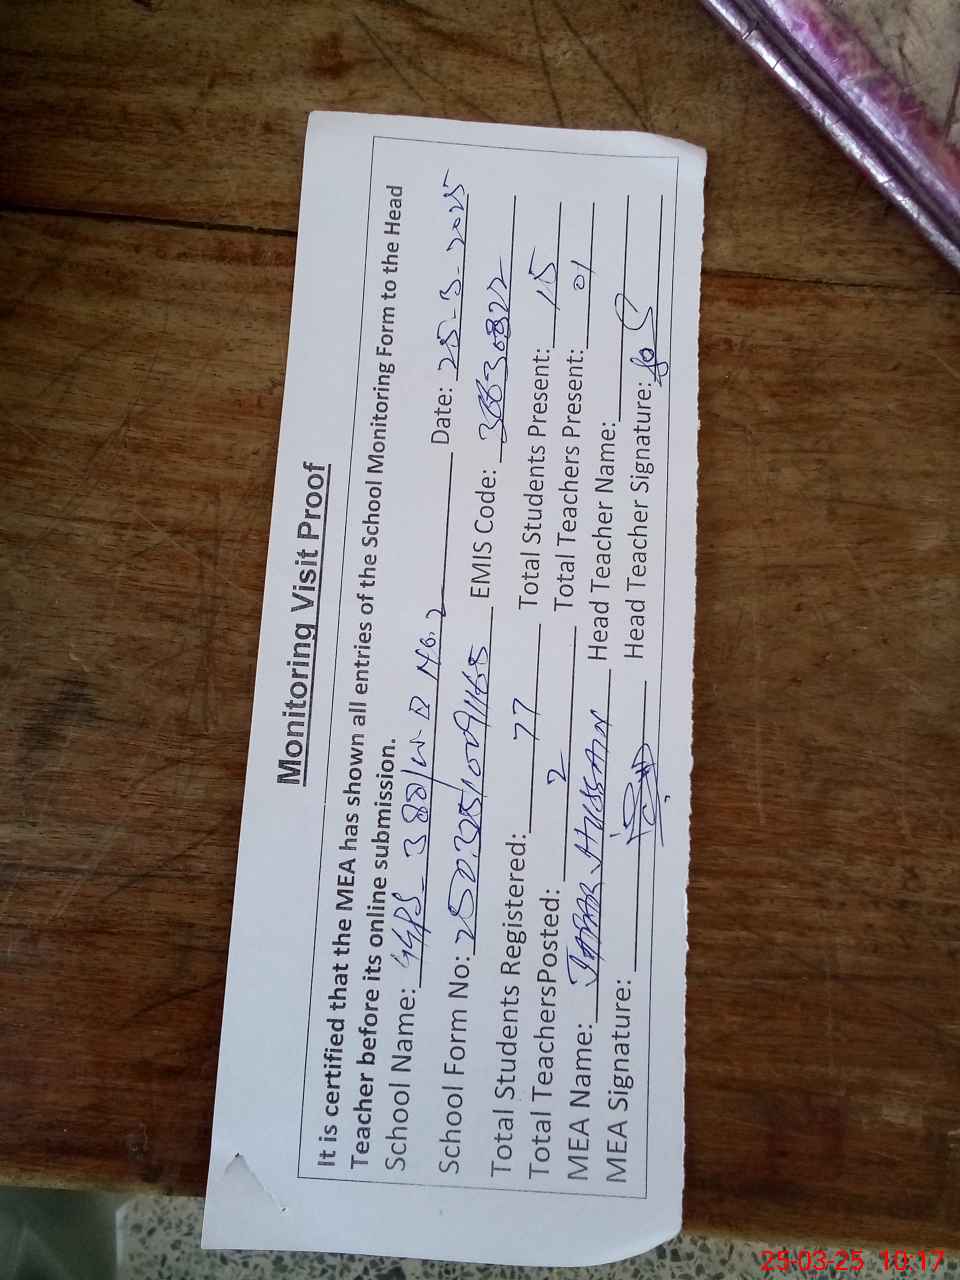 Monitoring Visit Proof
It is certified that the MEA has shown all entries of the School Monitoring Form to the Head
Teacher before its online submission.
School Name: GGPS - 380/W.B No. 2 Date: 25-3-2025
School Form No: EMIS Code: 36630822
Total Students Registered: 77 Total Students Present: 15
Total TeachersPosted: 2 Total Teachers Present: 01
MEA Name: JABBAR HUSSAIN Head Teacher Name:
MEA Signature: Head Teacher Signature:
25-03-25 10:17